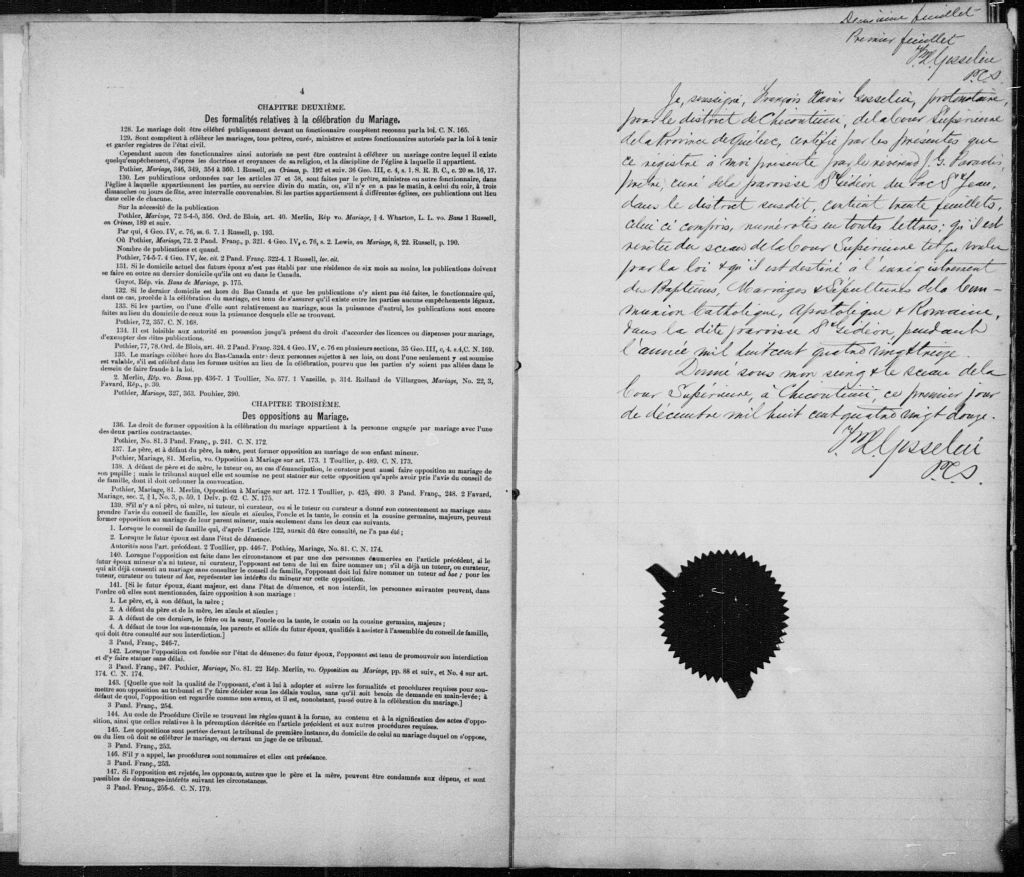 4
CHAPITRE DEUXIÈME.
Des formalités relatives à la célébration du Mariage.
128. Le mariage doit être célébré publiquement devant un fonctionnaire compétent reconnu par la loi. C. N. 165.
129. Sont compétent à célébrer les mariages, tous prêtres, curé-, ministres et autres fonctionnaires autorisés par la loi à tenir
et garder registres de l'état civil.
Cependant aucun des fonctionnaires ainsi autorisés ne peut être contraint à célébrer un mariage contre lequel il existe
quelqu'empêchement, d'après les doctrines et croyances de sa religion, et la discipline de l'église à laquelle il appartient.
Pothier, Mariage, 346, 349, 354 à 360. 1 Russell, on Crimes, p. 192 et suiv. 36 Geo. III, c. 4, s. 1. S. R. B. C., c. 20 ss. 16, 17.
130. Les publications ordonnées par les articles 57 et 58, sont faites par le prêtre, ministres ou autre fonctionnaire, dans
l'église à laquelle appartiennent les parties, au service divin du matin, ou, s'il n'y en a pas le matin, à celui du soir, à trois
dimanches ou jours de fête, avec intervalle convenables. Si les parties appartiennent à différentes églises, ces publications ont lieu
dans celle de chacune.
Sur la nécessité de la publication
Pothier, Mariage, 72 3-4-5, 356. Ord. de Blois, art. 40. Merlin, Rép vo. Mariage, § 4. Wharton, L. L. vo. Bans 1 Russell,
on Crimes, 189 et suiv.
Par qui, 4 Geo. IV, c. 76, ss. 6. 7. 1 Russell, p. 193.
Où Pothier, Mariage, 72. 2 Pand. Franç., p. 321. 4 Geo. IV, c. 76, s. 2. Lewis, on Mariage, 8, 22. Russell, p. 190.
Nombre de publications et quand.
Pothier, 74-5-7. 4 Geo. IV, loc. cit. 2 Pand. Franç. 322-4. 1 Russell, loc. cit.
131. Si le domicile actuel des futurs époux n'est pas établi par une résidence de six mois au moins, les publications doivent
se faire en outre au dernier domicile qu'ils ont eu dans le Canada.
Guyot, Rép. vis. Bans de Mariage, p. 175.
132. Si le dernier domicile est hors du Bas Canada et que les publications n'y aient pas été faites, le fonctionnaire qui,
dant ce cas, procède à la célébration du mariage, est tenu de s'assurer qu'il existe entre les parties aucune empêchements légaux.
133. Si les parties, ou l'une d'elle sont relativement au mariage, sous la puissance d'autrui, les publications sont encore
faites au lieu du domicile de ceux sous la puissance desquels elle se trouvent.
Pothier, 72, 357. C. N. 168.
134. Il est loisible aux autorité en possession jusqu'à présent du droit d'accorder des licences ou dispenses pour mariage,
d'exempter des dites publications.
Pothier, 77, 78. Ord. de Blois, art. 40. 2 Pand. Franç. 324. 4 Geo. IV, c. 76 en plusieurs sections, 35 Geo. III, c. 4, s.4, C. N. 169.
135. Le mariage célébré hors du Bas-Canada entre deux personnes sujettes à ses lois, ou dont l'une seulement y est soumise
est valable, s'il est célébré dans les formes usitées au lieu de la célébration, pourvu que les parties n'y soient pas allées dans le
dessein de faire fraude à la loi.
2. Merlin, Rép. vo. Bans. pp. 436-7. 1 Toullier, No. 577. 1 Vazeille. p. 314. Rolland de Villargues, Mariage, No. 22, 3,
Favard, Rép., p. 39.
Pothier, Mariage, 327, 363. Pouhier, 390.
CHAPITRE TROISIÈME.
Des oppositions au Mariage.
136. Le droit de former opposition à la célébration du mariage appartient à la personne engagée par mariage avec l'une
des deux parties contractantes.
Pothier, No. 81. 3 Pand. Franç., p. 241. C. N. 172.
137. Le père, et à défaut du père, la mère, peut former opposition au mariage de son enfant mineur.
Pothier, Mariage, 81. Merlin, vo. Opposition à Mariage sur art. 173. 1 Toullier, p. 489. C. N. 173.
138. A défaut de père et de mère, le tuteur ou, au cas d'émancipation, le curateur peut aussi faire opposition au mariage de
son pupille; mais le tribunal auquel elle est soumise ne peut statuer sur cette opposition qu'après avoir pris l'avis du conseil de
famille, dont il doit ordonner la convocation.
Pothier, Mariage, 81. Merlin, Opposition à Mariage sur art. 172. 1 Toullier, p. 425, 490. 3 Pand. Franç., 248. 2 Favard,
Mariage, sec. 2, § 1, No. 3, p. 59. 1 Delv. p. 62. C. N. 175.
139. S'il n'y a ni père, ni mère, ni tuteur, ni curateur, ou si le tuteur ou curateur a donné son consentement au mariage sans
prendre l'avis du conseil de famille, les aïeuls et aïeules, l'oncle et la tante, le cousin et la cousine germains, majeurs, peuvent
former opposition au mariage de leur parent mineur, mais seulement dans les deux cas suivants.
1. Lorsque le conseil de famille qui, d'après l'article 122, aurait dû être consulté, ne l'a pas été;
2. Lorsque le futur époux est dans l'état de démence.
Autorités sous l'art. précédent. 2 Toullier, pp. 446-7. Pothier, Mariage, No. 81. C. N. 174.
140. Lorsque l'opposition est faite dans les circonstances et par une des personnes énumérées en l'article précédent, si le
futur époux mineur n'a ni tuteur, ni curateur, l'opposant est tenu de lui en faire nommer un; s'il a déjà un tuteur, ou curateur,
qui ait déjà consenti au mariage sans consulter le conseil de famille, l'opposant doit lui faire nommer un tuteur ad hoc; pour les
tuteur, curateur ou tuteur ad hoc, représenter les intérêts du mineur sur cette opposition.
141. [Si le futur époux, étant majeur, est dans l'état de démence, et non interdit, les personnes suivantes peuvent, dans
l'ordre où elles sont mentionnées, faire opposition à son mariage:
1. Le père, et, à son défaut, la mère;
2. A défaut du père et de la mère, les aïeuls et aïeules;
3. A défaut de ces derniers, le frère ou la sœur, l'oncle ou la tante, le cousin ou la cousine germains, majeurs;
4. A défaut de tous les sus-nommés, les parents et alliés du futur époux, qualifiés à assister à l'assemblée du conseil de famille,
qui doit être consulté sur son interdiction.]
3 Pand. Franç., 246-7.
142. Lorsque l'opposition est fondée sur l'état de démence du futur époux, l'opposant est tenu de promouvoir son interdiction
et d'y faire statuer sans délai.
3 Pand. Franç., 247. Pothier, Mariage, No. 81. 22 Rép. Merlin, vo. Opposition au Mariage, pp. 88 et suiv., et No. 4 sur art.
174. C. N. 174.
143. [Quelle que soit la qualité de l'opposant, c'est à lui à adopter et suivre les formalités et procédures requises pour sou-
mettre son opposition au tribunal et l'y faire décider sous les délais voulus, sans qu'il soit besoin de demande en main-levée; à
défaut de quoi, l'opposition est regardée comme non avenu, et il est, nonobstant, passé outre à la célébration du mariage.]
3 Pand. Franç., 254.
144. Au code de Procédure Civile se trouvent les règles quant à la forme, au contenu et à la signification des actes d'oppo-
sition, ainsi que celles relatives à la péremption décrétée en l'article précédent et aux autres procédures requises.
145. Les oppositions sont portées devant le tribunal de première instance, du domicile de celui au mariage duquel on s'oppose,
ou du lieu où doit se célébrer le mariage, ou devant un juge de ce tribunal.
3 Pand. Franç., 253.
146. S'il y a appel, les procédures sont sommaires et elles ont préséance.
3 Pand. Franç., 253.
147. Si l'opposition est rejetée, les opposants, autres que le père et la mère, peuvent être condamnés aux dépens, et sont
passibles de dommages-intérêts suivant les circonstances.
3 Pand. Franç., 255-6. C. N. 179.
Deuxième feuillet
Premier feuillet
F.X. Gosselin
P.C.S.
Je, soussigné, François Xavier Gosselin, protonotaire,
pour le district de Chicoutimi, de la Cour Supérieure
de la Province de Québec, certifie par les présentes que
ce registre à moi présenté par le révérend J. G. Paradis
prêtre, curé de la paroisse St Gédéon du Lac St Jean,
dans le district susdit, contient trente feuillets,
celui ci compris, numérotés en toutes lettres; qu'il est
revêtu du sceau de la Cour Supérieure tel que voulu
par la loi & qu'il est destiné à l'enregistrement
des Baptêmes, Mariages & Sépultures de la Com-
munion Catholique, Apostolique & Romaine,
dans la dite paroisse St Gédéon pendant
l'année mil huit cent quatre vingt treize.
Donné sous mon seing & le sceau de la
Cour Supérieure, à Chicoutimi, ce premier jour
de décembre mil huit cent quatre vingt douze.
F.X. Gosselin
P.C.S.